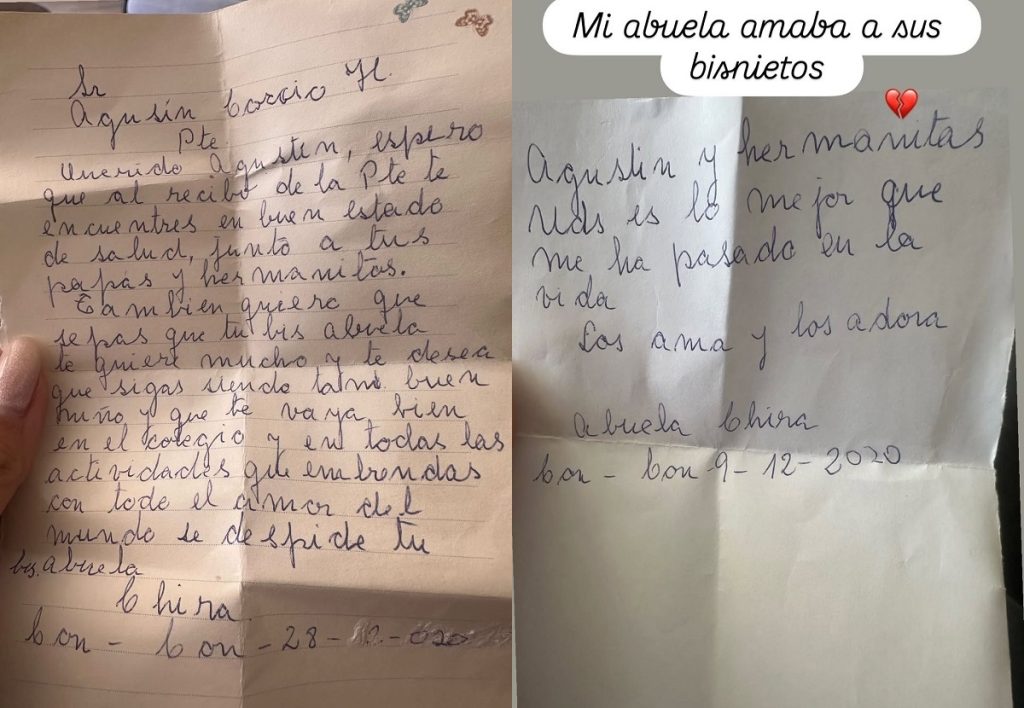 Sr
Agustín Corcio H.
Pte
Querido Agustin, espero
que al recibo de la Pte te
encuentres en buen estado
de salud, junto a tus
papás y hermanitos.
Tambien quiero que
sepas que tu bis abuela
te quiere mucho y te desea
que sigas siendo tan buen
niño y que te vaya bien
en el colegio y en todas las
actividades que emprendas
con todo el amor del
mundo se despide tu
bis. abuela
Chira
Con - Con - 28 -
Mi abuela amaba a sus
bisnietos
Agustin y hermanitas
Uds es lo mejor que
me ha pasado en la
vida
Los ama y los adora
abuela Chira
Con - Con 9-12-2020